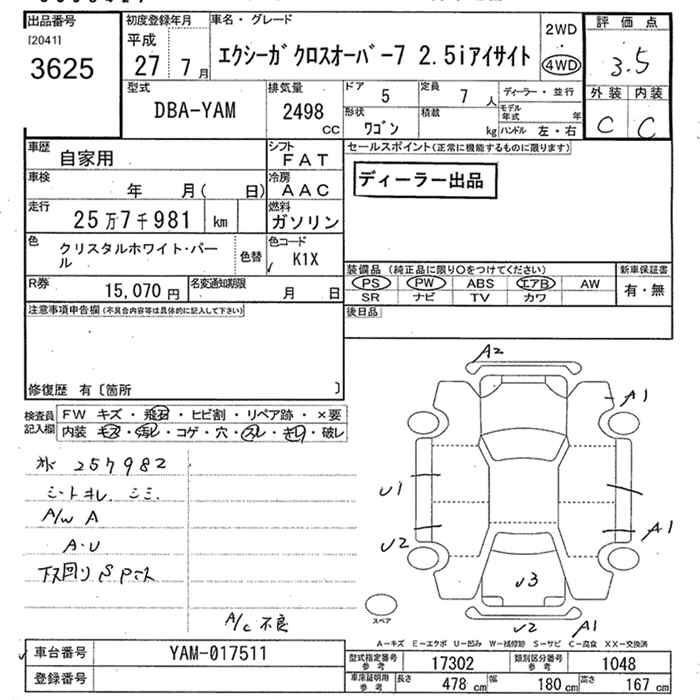 出品番号
[2041]
3625
初度登録年月
平成
27 7 月
車名・グレード
エクシーガ クロスオーバー7 2.5iアイサイト
2WD
4WD
評価点
3.5
外装 内装
C C
型式
DBA-YAM
排気量
2498
CC
ドア
5
定員
7 人
形状
ワゴン
積載
kg
ディーラー・並行
モデル年式 年
ハンドル 左・右
車歴
自家用
シフト
FAT
車検
年 月( 日)
冷房
AAC
走行
25万7千981 km
燃料
ガソリン
色
クリスタルホワイト・パール
色替
色コード
K1X
R券
15,070 円
名変通知期限
月 日
セールスポイント(正常に機能するものに限ります)
ディーラー出品
装備品 (純正品に限り○をつけてください)
PS PW ABS エアB AW
SR ナビ TV カワ
新車保証書
有・無
後日品
注意事項申告欄(不具合内容等は具体的に記入して下さい)
修復歴 有〔箇所 〕
検査員記入欄
FW キズ・飛石・ヒビ割・リペア跡・×要
内装 キズ・汚レ・コゲ・穴・スレ・キレ・破レ
257982
シートキレ、シミ
A/W A
A・U
下廻りS
A/C 不良
A2
A1
U1
A1
U2
U3
U2
A1
スペア
A-キズ E-エクボ U-凹み W-補修跡 S-サビ C-腐食 XX-交換済
車台番号
YAM-017511
登録番号
型式指定番号 参考
17302
類別区分番号 参考
1048
車庫証明用 参考
長さ 478 cm
幅 180 cm
高さ 167 cm